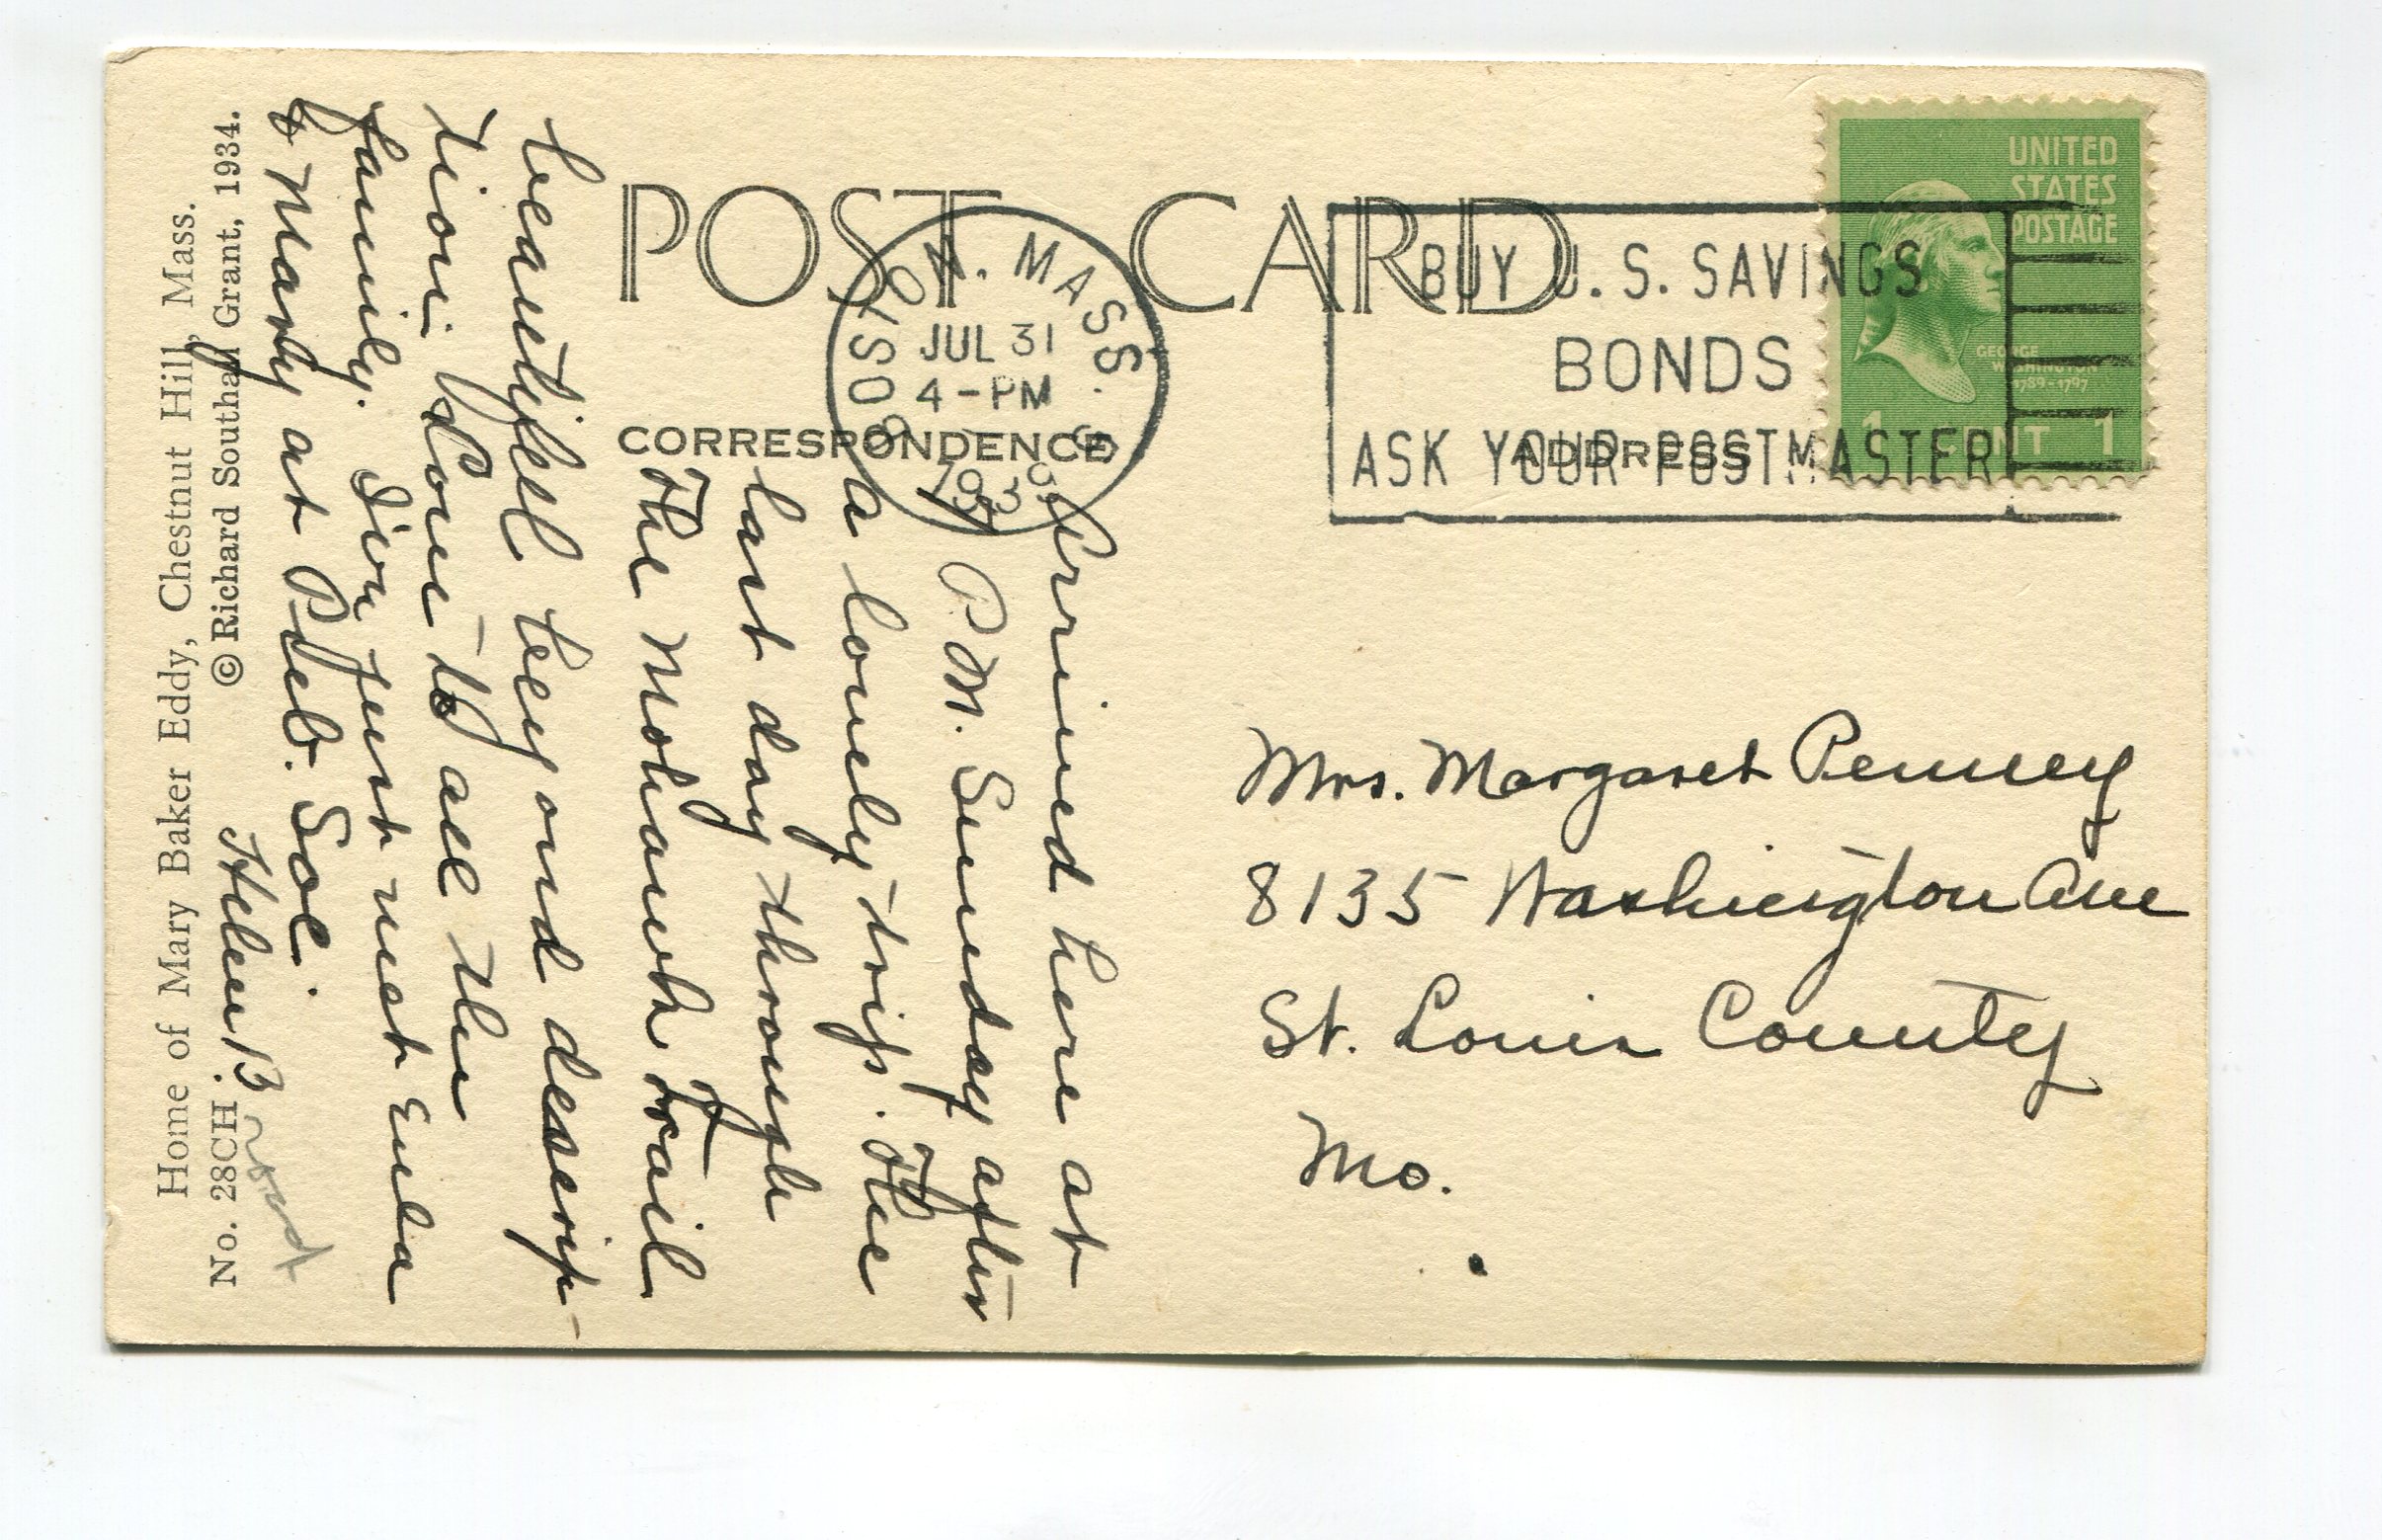 POST CARD
BOSTON. MASS.
JUL 31
4-PM
1939
BUY U.S. SAVINGS
BONDS
ASK YOUR POSTMASTER
UNITED
STATES
POSTAGE
GEORGE
WASHINGTON
1789-1797
1 CENT 1
CORRESPONDENCE
ADDRESS
Arrived here at
7 P.M. Sunday after
a lovely trip. The
last day through
the Mohawk Trail
beautiful beyond descrip-
tion. Love to all the
family. Ive just met Eula
& Mary at Pub. Soc.
Helen B
Mrs. Margaret Penney
8135 Washington Ave
St. Louis County
Mo.
Home of Mary Baker Eddy, Chestnut Hill, Mass.
No. 28CH © Richard Southall Grant, 1934.